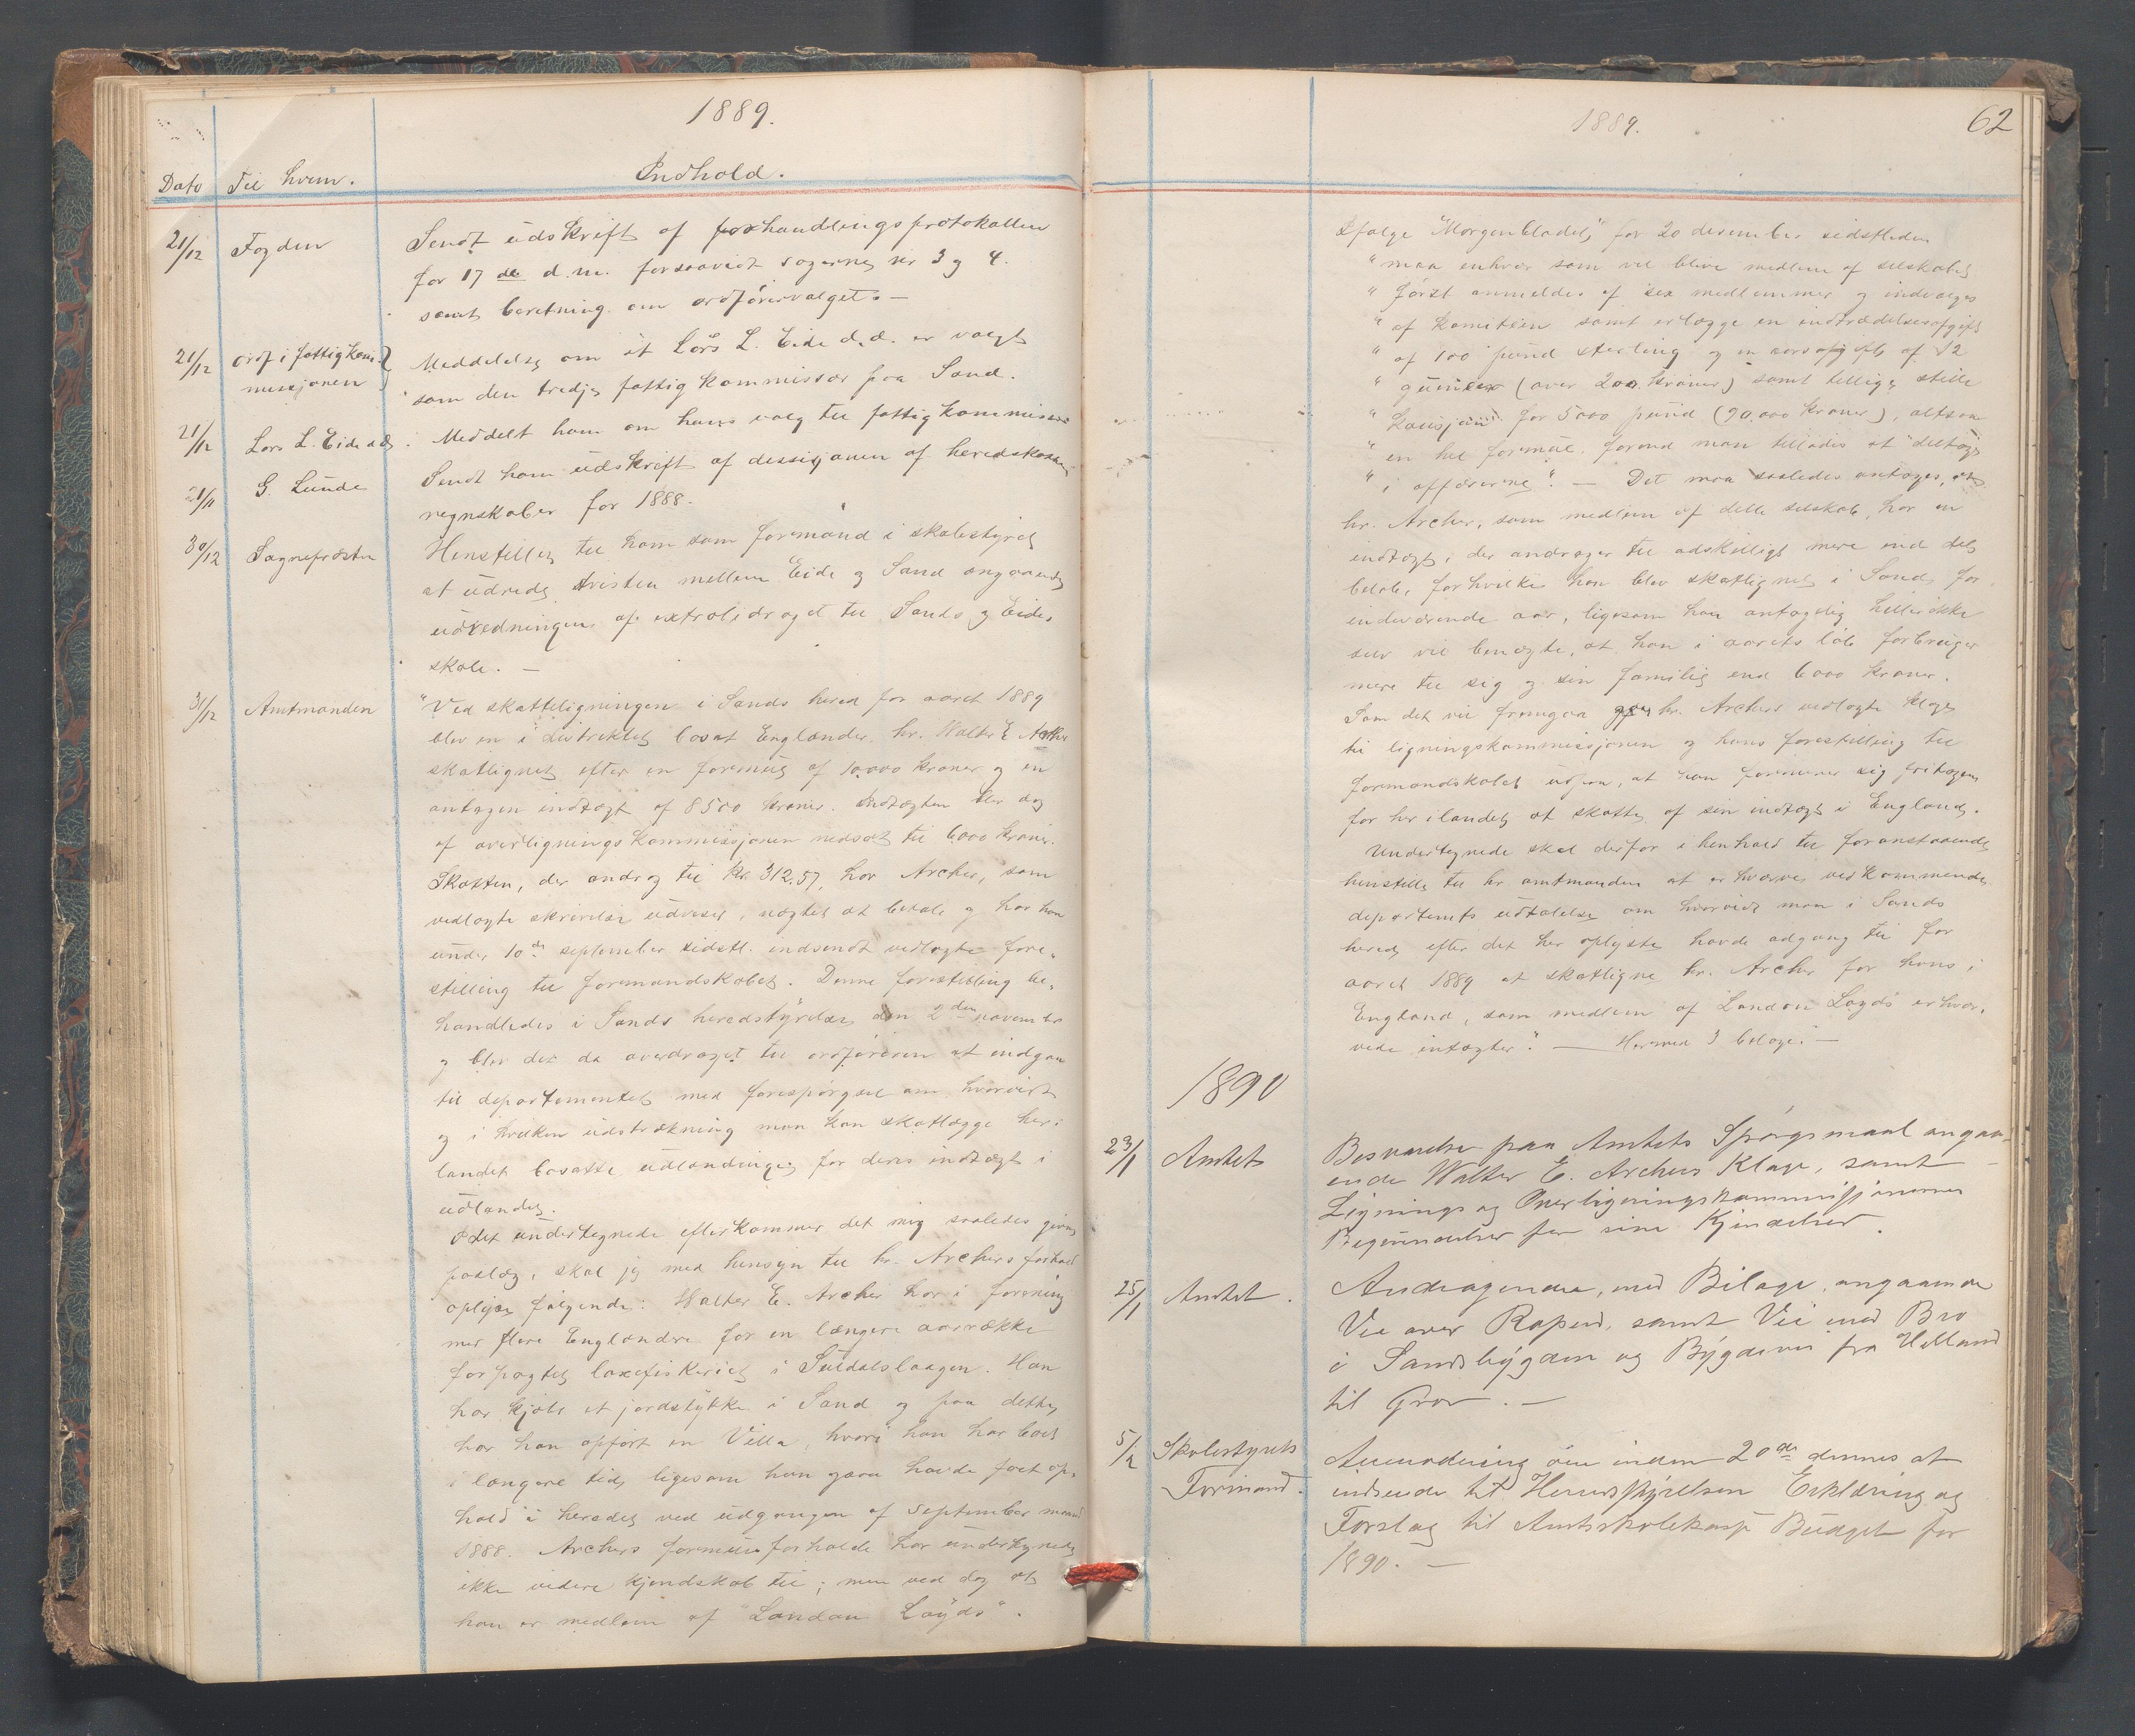 1889.
Dato Til hvem. Indhold.
21/12 Fogden Sendt udskrift af forhandlingsprotokollen
for 17 de d.m. forsaavidt sagerne nr 3 og 4.
samt beretning om ordförervalget. —
21/12 ordf i fattigkom- Meddelelse om at Lars L. Eide d.æ. er valgt
missjonen som den tredje fattigkommissær paa Sand.
21/12 Lars L. Eide d.æ. Meddelt ham om hans valg til fattigkommissær
21/12 G. Lunde Sendt ham udskrift af dessisjonen af heredskasse-
regnskaber for 1888.
30/12 Sogneprästen Henstillet til ham som formand i skolestyret
at udrede tvisten mellem Eide og Sand angaaende
udredningen af extrabidraget til Sands og Eides
skole. —
31/12 Amtmanden "Ved skatteligningen i Sands hered for aaret 1889
blev en i distriktet bosat Englænder hr. Walter E Archer
skatlignet efter en formue af 10000 kroner og en
antagen indtægt af 8500 kroner. Indtægten blev dog
af overligningskommissjonen nedsat til 6000 kroner.
Skatten, der androg til kr. 312.57, har Archer, som
vedlagte skrivelse udviser, nægtet at betale og har han
under 10de september sidstl. indsendt vedlagte fore-
stilling til formandskabet. Denne forestilling be-
handledes i Sands heredstyrelse den 2den november
og blev det da overdraget til ordföreren at indgaa
til departementet med forespörgsel om hvorvidt
og i hvilken udstrækning man kan skatlægge her i
landet bosatte udlændinger for deres indtægt i
udlandet.
Idet undertegnede efterkommer det mig saaledes givne
paalæg, skal jeg med hensyn til hr. Archers forhold
oplyse fölgende: Walter E. Archer har i forening
med flere Englændre for en længere aarrække
forpagtet laxefiskeriet i Suldalslaagen. Han
har kjöbt et jordstykke i Sand og paa dette
har han opfört en Villa, hvori han har boet
i længere tid, ligesom han havde fast op-
hold i heredet ved udgangen af september maaned
1888. Archers formuesforholde har undertegnede
ikke videre kjendskab til; men ved dog at
han er medlem af "London Loyds".
1889. 62
Ifölge "Morgenbladet" for 20 desember sidstleden
" maa enhver som vil blive medlem af selskabet
" först anmeldes af sex medlemmer og indvælges
" af komiteen samt erlægge en indtrædelsesafgift
" af 100 pund sterling og en aarsafgift af 12
" guineer (over 200 kroner) samt tillige stille
" Kausjon for 5000 pund (90.000 kroner), altsaa
" en hel formue, forend man tillades at deltage
" i affærerne". — Det maa saaledes antages, at
hr. Archer, som medlem af dette selskab, har en
indtægt, der andrager til adskilligt mere end det
belöb, forhvilket han blev skatlignet i Sand, for
indeværende aar, ligesom han antagelig heller ikke
selv vil benægte, at han i aarets löb forbruger
mere til sig og sin familie end 6000 kroner.
Som det vil fremgaa af hr. Archers vedlagte klage
til ligningskommissjonen og hans forestilling til
formandskabet udfra, at han formener sig fritagen
for her i landet at skatte af sin indtægt i England.
Undertegnede skal derfor i henhold til foranstaaende
henstille til hr. amtmanden at erhverve vedkommende
departements udtalelse om hvorvidt man i Sands
hered efter det her oplyste havde adgang til for
aaret 1889 at skatligne hr. Archer for hans i
England, som medlem af London Loyds erhver-
vede intægter". — Hermed 3 bilage. —
1890
23/1 Amtet Besvarelse paa Amtets Spörgsmaal angaa-
ende Walter E. Archers Klage, samt
Lignings og Overligningskommissjonernes
Begrundelser for sine Kjendelser.
25/1 Amtet. Andragender, med Bilage, angaaende
Vei over Ropeid, samt Vei med Bro
i Sandsbygden og Bygdevei fra Helland
til Grov. —
5/2 Skolestyrets Anmodning om inden 20de dennes at
Formand. indsende til Herredsstyrelsen Erklæring og
Forslag til Amtsskolekasse Budget for
1890. —